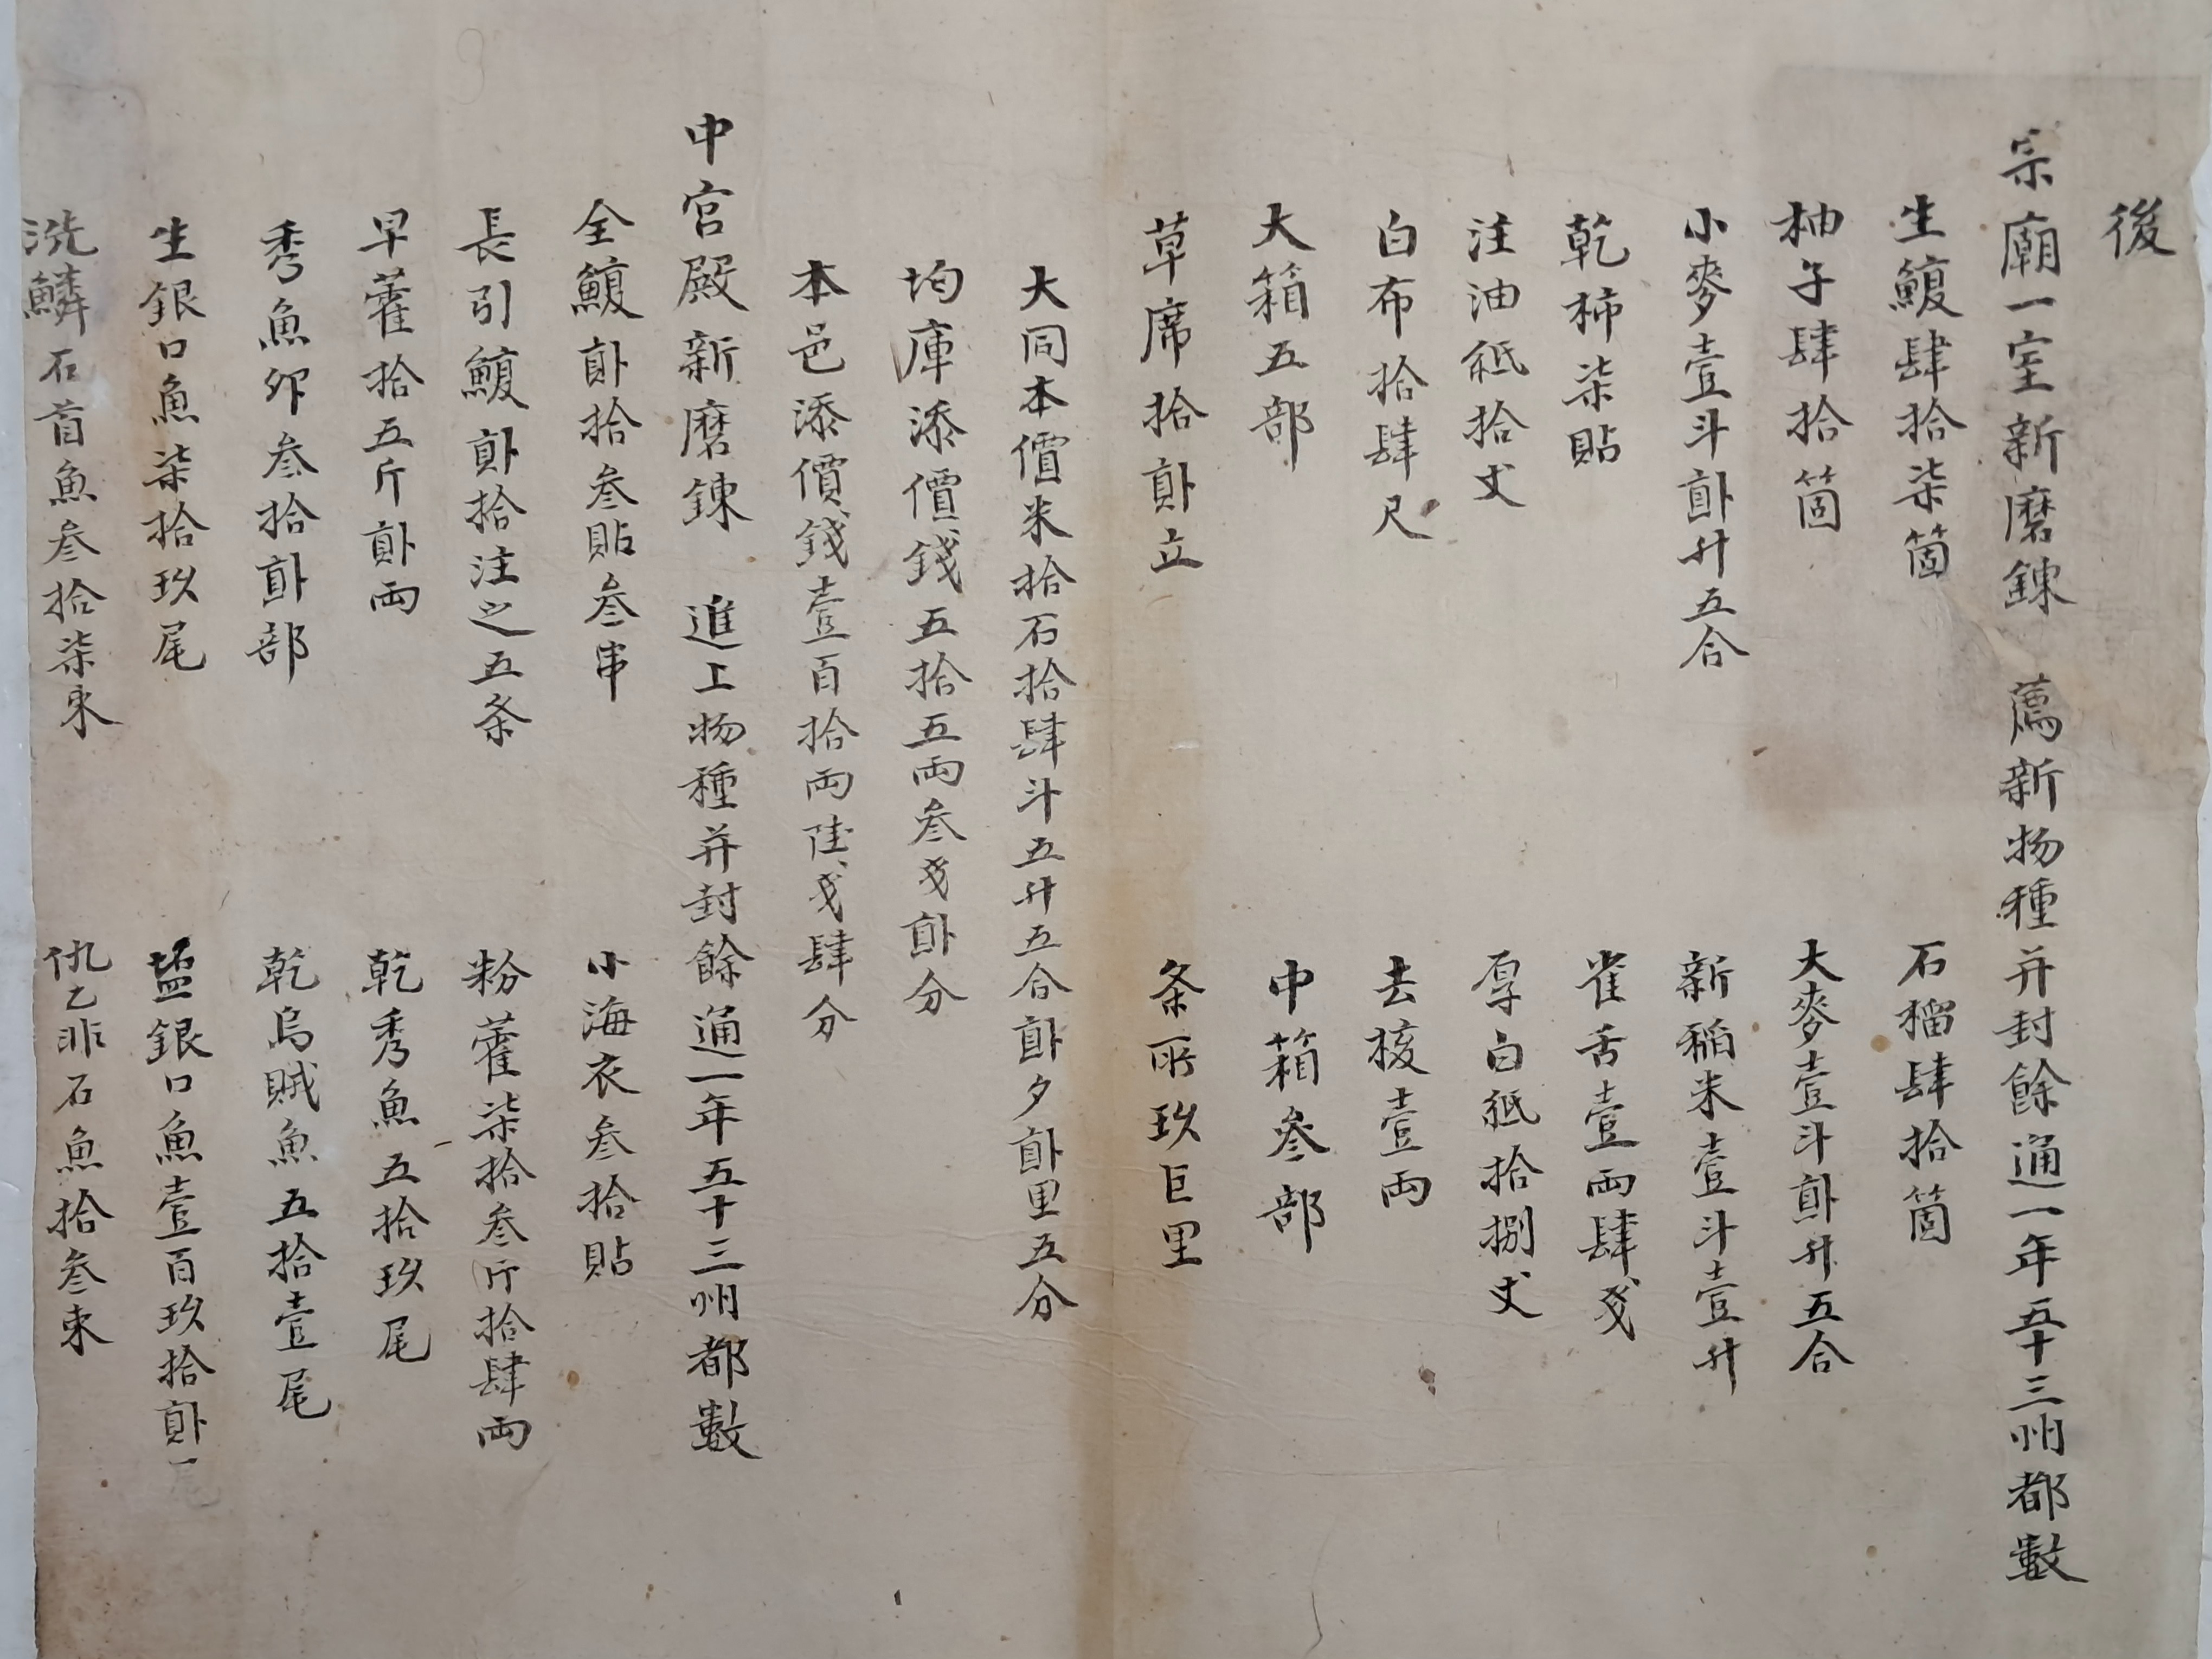 後
宗廟一室新磨鍊 薦新物種并封餘通一年五十三州都數
生鰒肆拾柒箇 石榴肆拾箇
柚子肆拾箇 大麥壹斗貳升五合
小麥壹斗貳升五合 新稻米壹斗壹升
乾柿柒貼 雀舌壹両肆戔
注油紙拾丈 厚白紙拾捌丈
白布拾肆尺 去核壹両
大箱五部 中箱叁部
草席拾貳立 条所玖巨里
大同本價米拾石拾肆斗五升五合貳夕貳里五分
均庫添價錢五拾五両叁戔貳分
本邑添價錢壹百拾両陸戔肆分
中宮殿新磨鍊 進上物種并封餘通一年五十三州都數
全鰒貳拾叁貼叁串 小海衣叁拾貼
長引鰒貳拾注之五条 粉藿柒拾叁斤拾肆両
早藿拾五斤貳両 乾秀魚五拾玖尾
秀魚卵叁拾貳部 乾烏賊魚五拾壹尾
生銀口魚柒拾玖尾 塩銀口魚壹百玖拾貳尾
洗鱗石首魚叁拾柒束 仇乙非石魚拾叁束